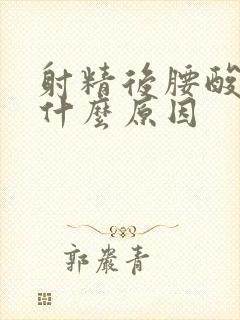 射精後腰酸
什麼原因
郭嚴青